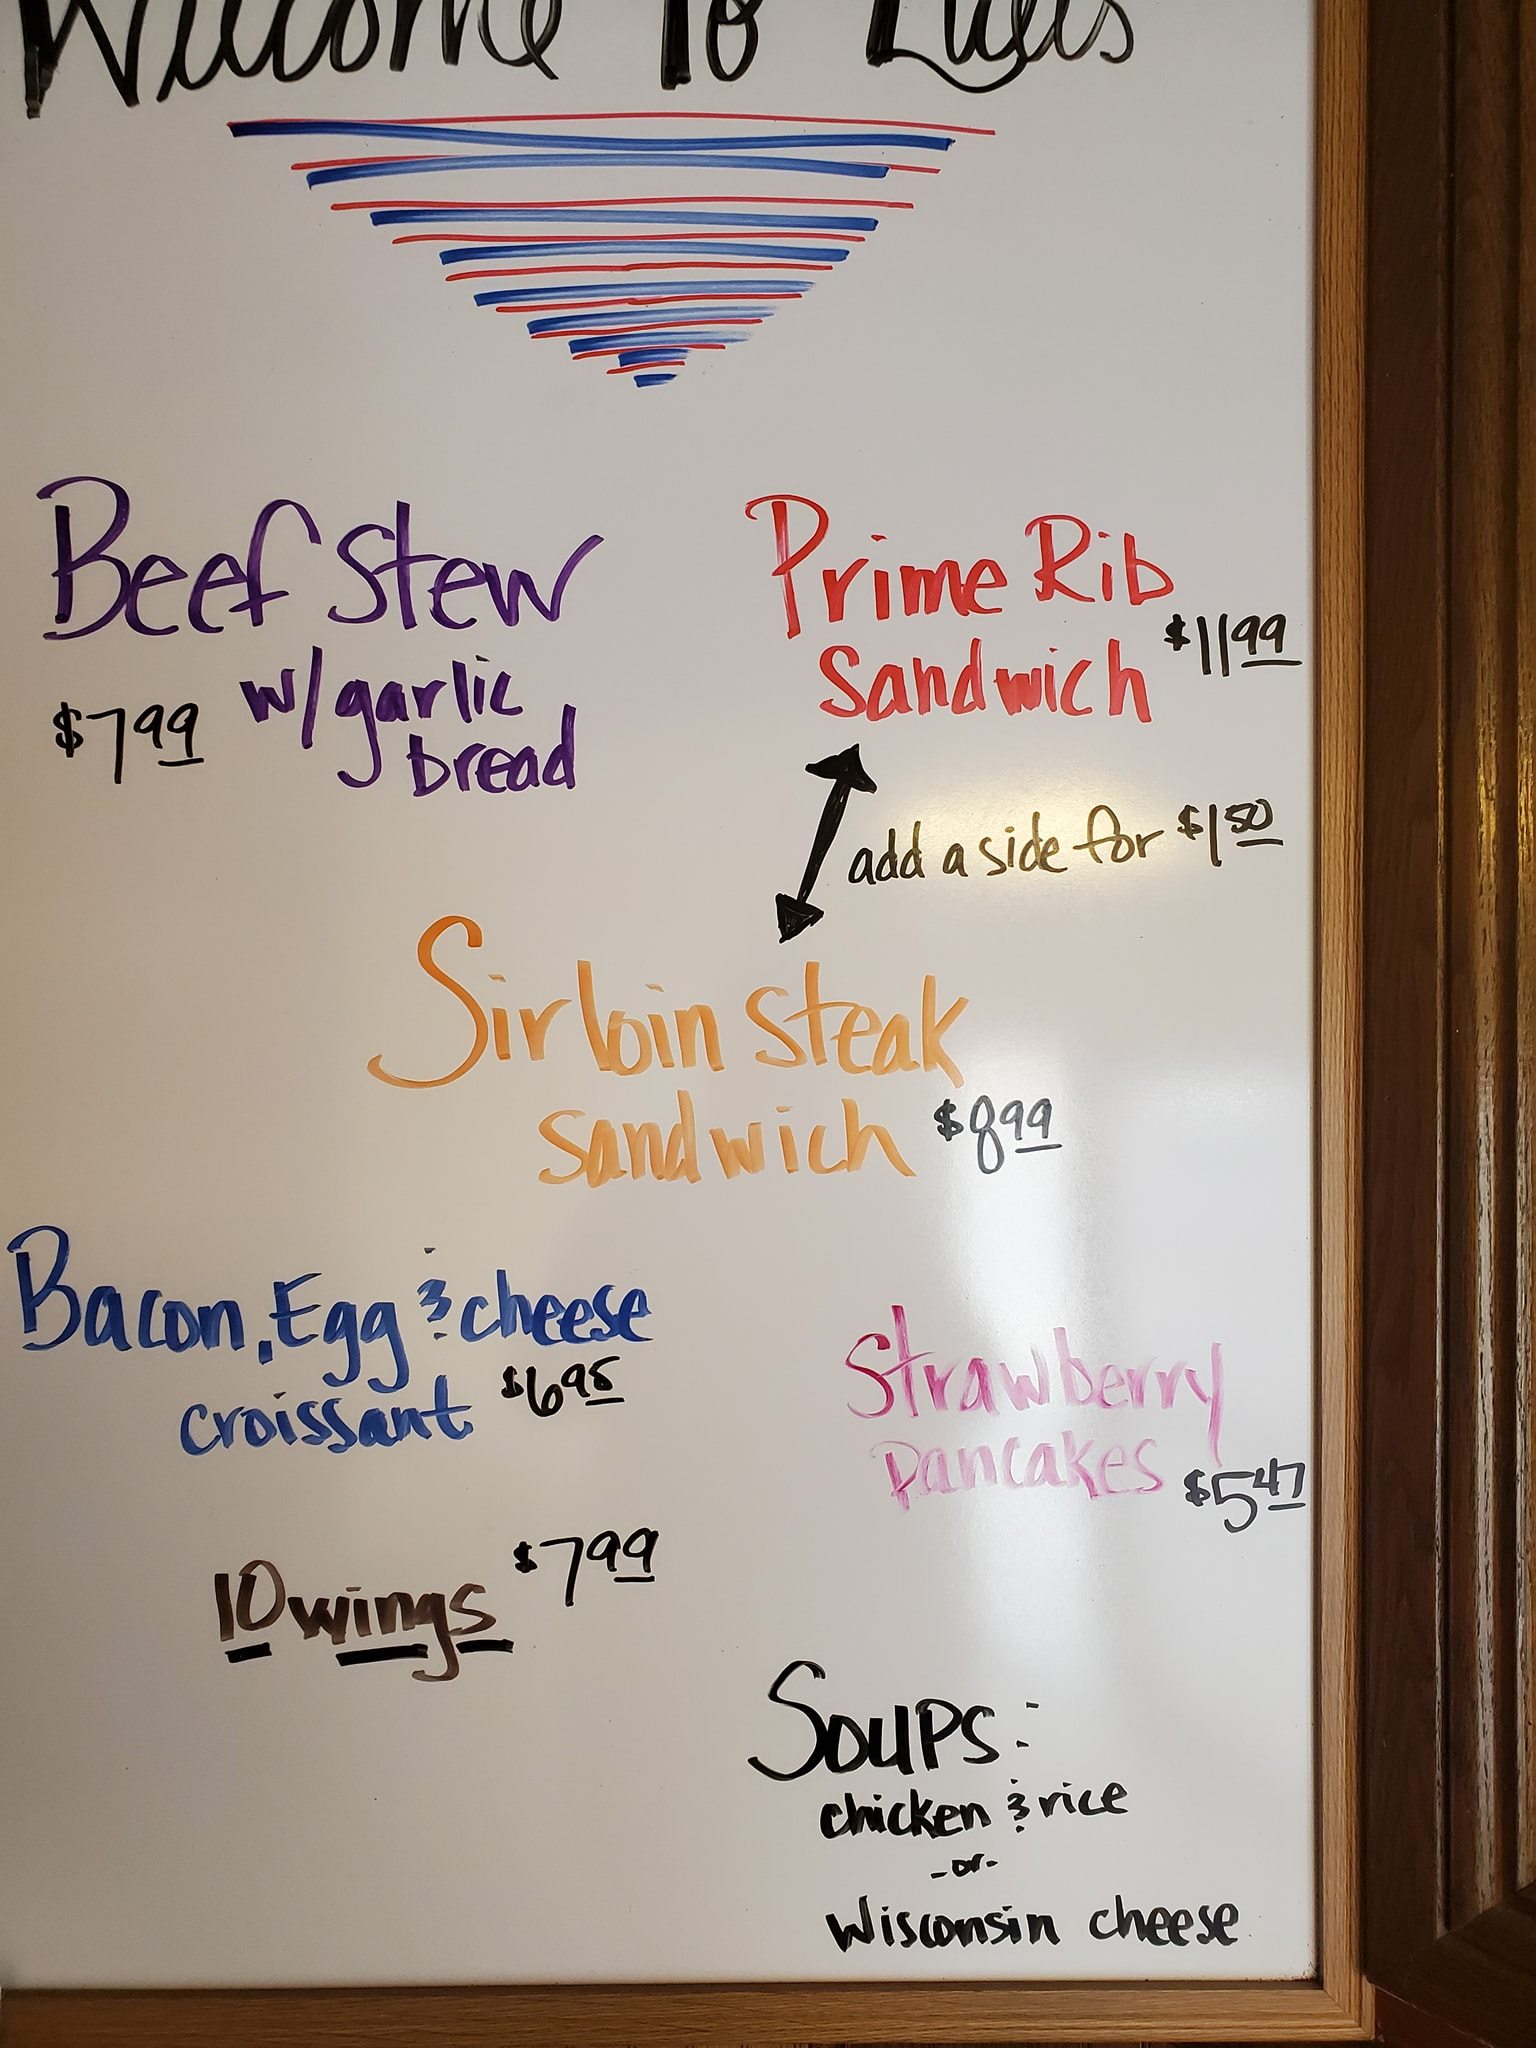 Welcome To
Beef Stew
w/garlic
bread
$7.99
Prime Rib
Sandwich $11.99
add a side for $1.50
Sirloin Steak
Sandwich $8.99
Bacon, Egg & cheese
croissant $6.98
Strawberry
Pancakes $5.47
10 wings $7.99
Soups:
chicken & rice
-or-
Wisconsin cheese